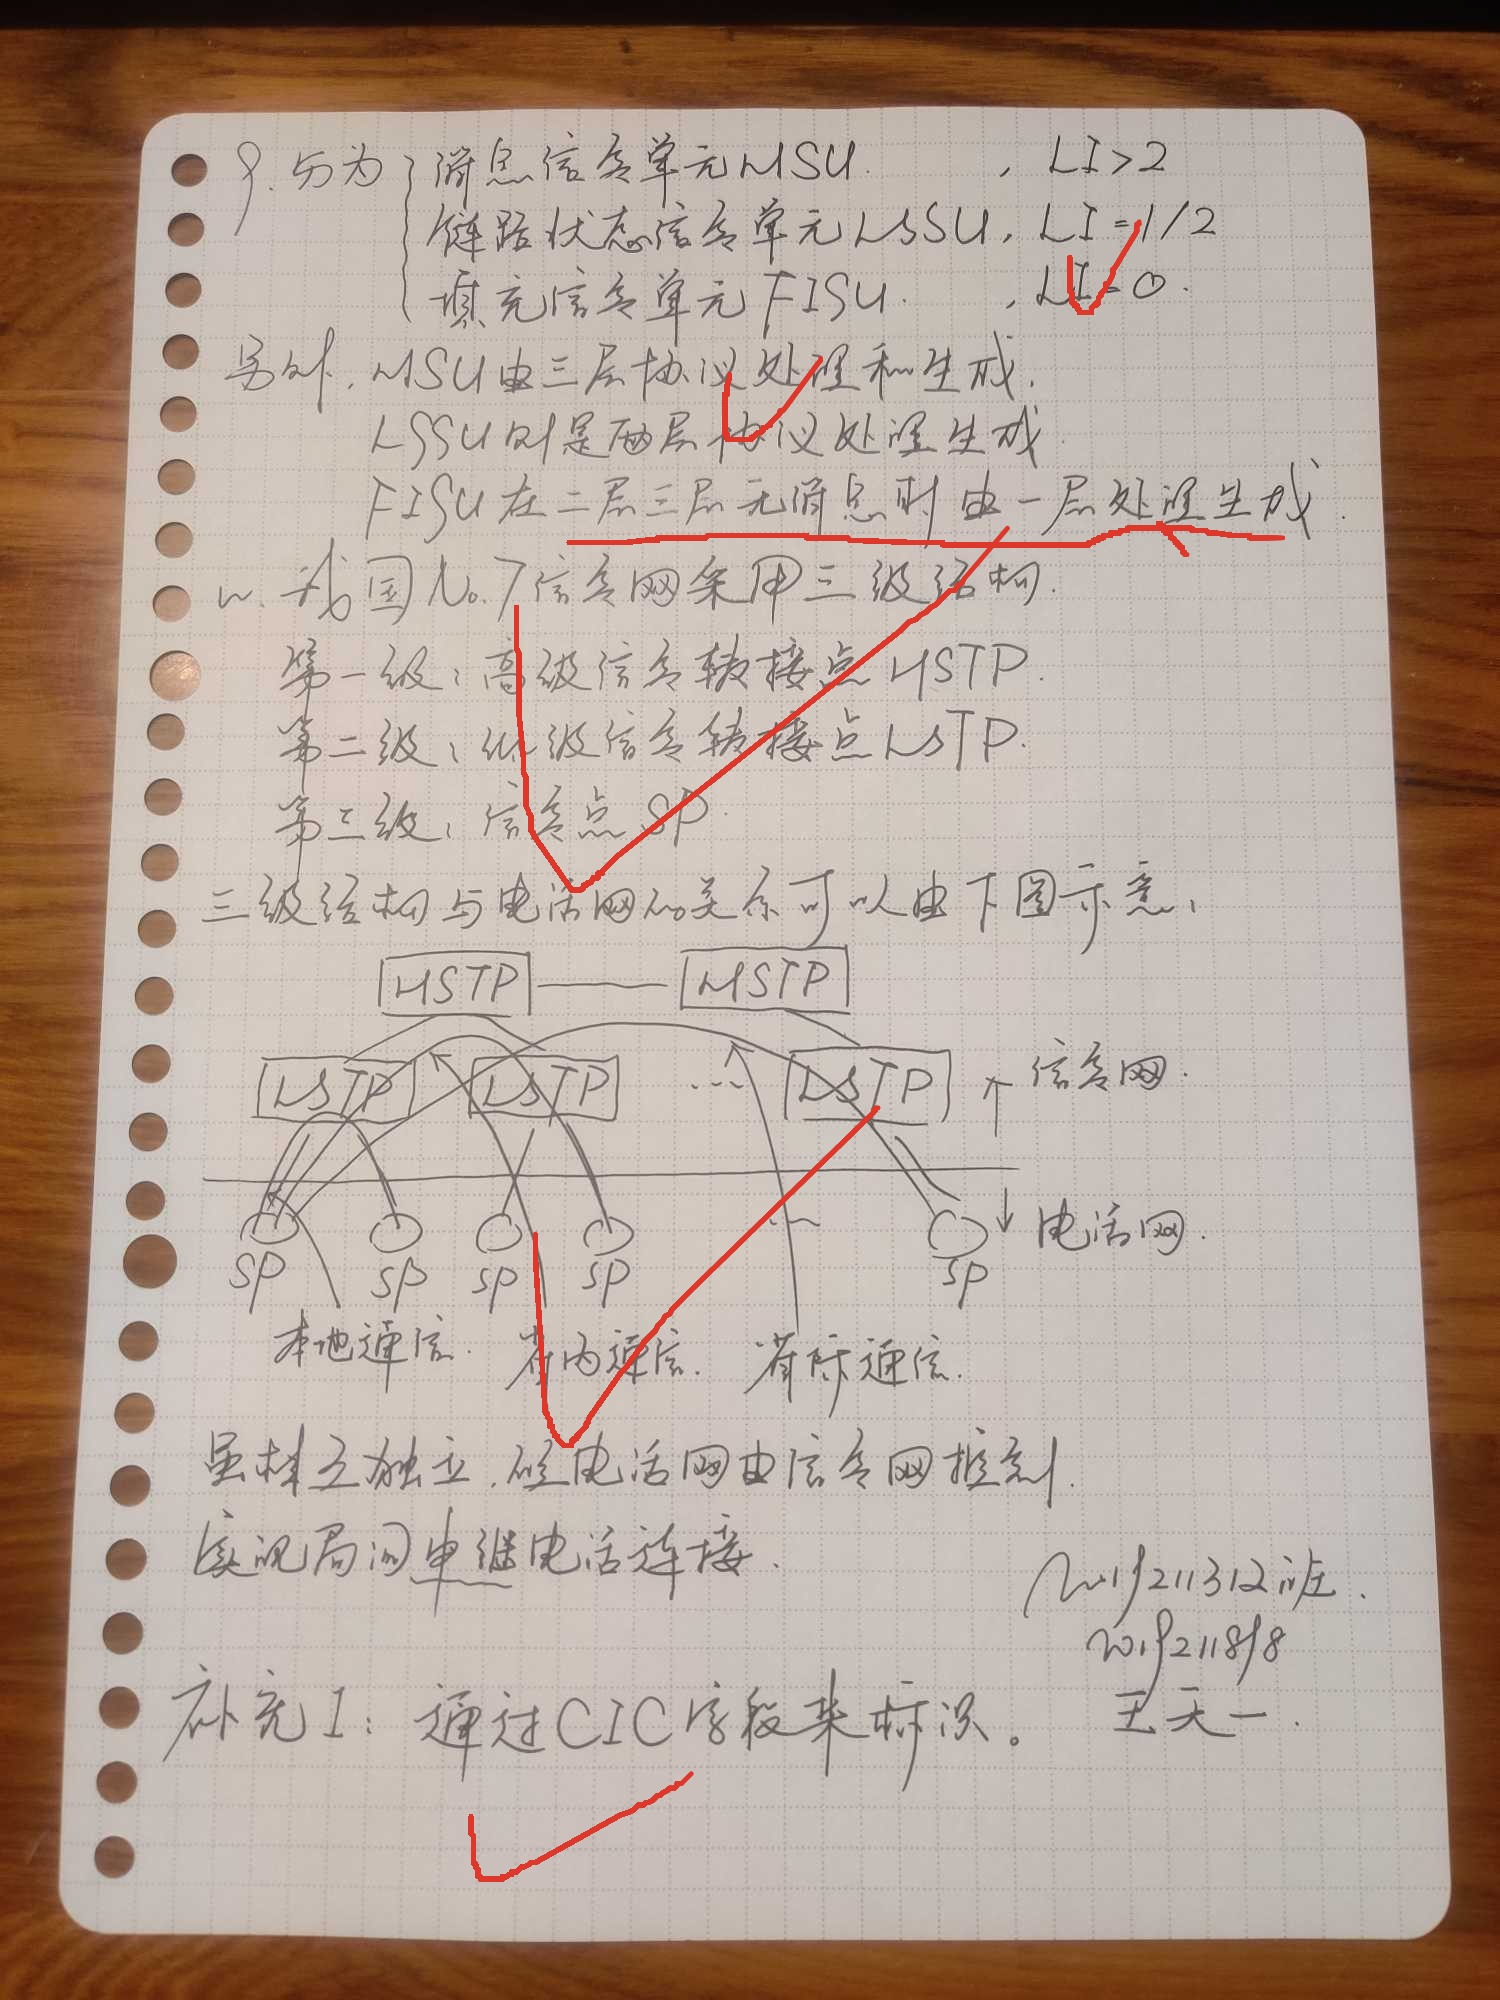 9. 分为 消息信令单元MSU. , LI>2
链路状态信令单元LSSU, LI=1/2
填充信令单元FISU. , LI=0.
另外. MSU由三层协议处理和生成.
LSSU则是两层协议处理生成.
FISU在二层三层无消息时由一层处理生成.
我国No.7信令网采用三级结构.
第一级:高级信令转接点HSTP.
第二级:低级信令转接点LSTP.
第三级:信令点SP.
三级结构与电话网的关系可以由下图示意:
HSTP HSTP
LSTP LSTP ... LSTP ↑ 信令网.
↓ 电话网.
SP SP SP SP SP
本地通信. 省内通信. 省际通信.
虽相互独立. 电话网由信令网控制.
实现局间中继电话连接.
2019211312班.
2019211898
王天一.
补充1: 通过CIC字段来标识。